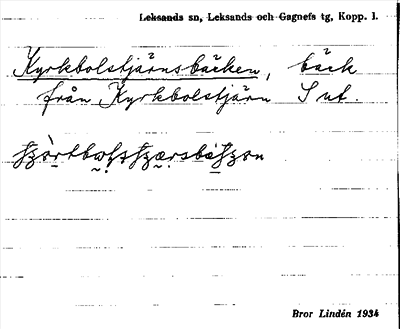 Leksands sn, Leksands och Gagnefs tg, Kopp. l.
Kyrkbolstjärnsbäcken, bäck
från Kyrkbolstjärn S ut.
Bror Lindén 1934